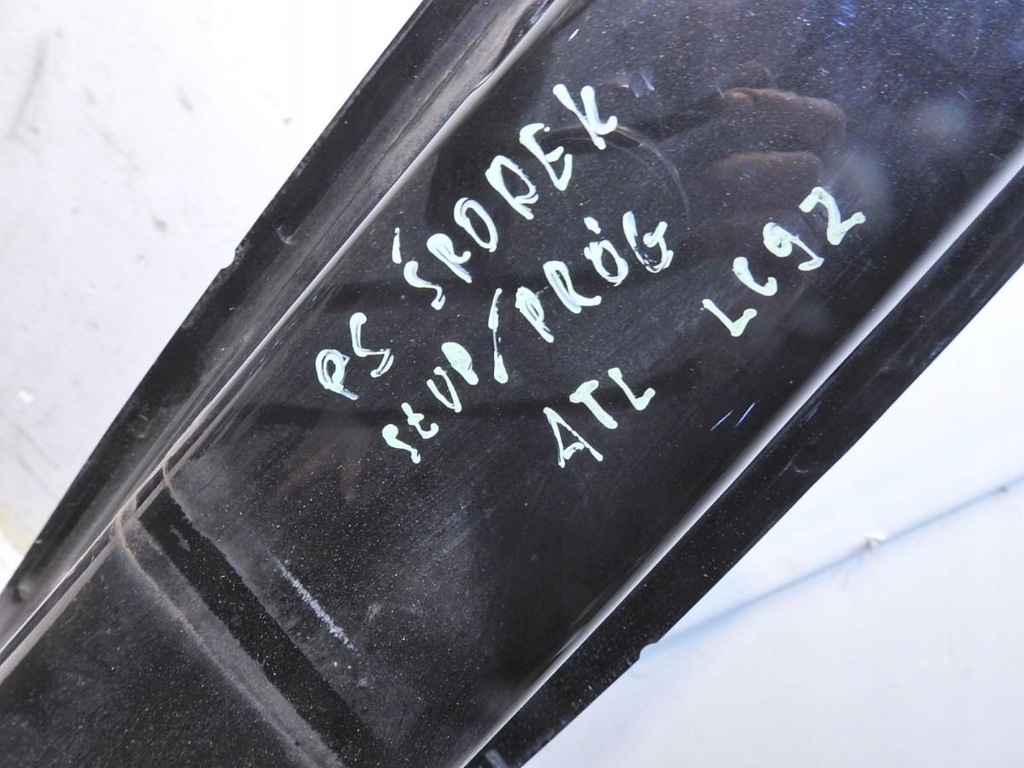 PS ŚRODEK
SŁUP/PRÓG
ATL LC9Z